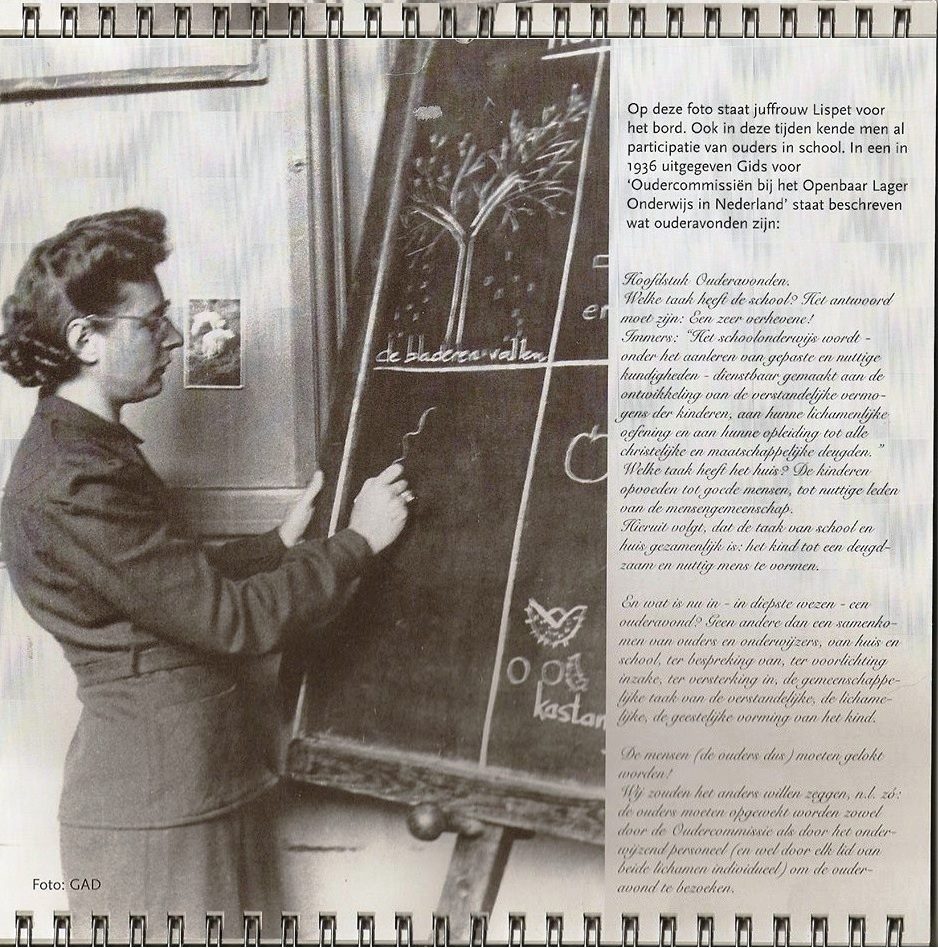 de bladeren vallen
er
kastan
Foto: GAD
Op deze foto staat juffrouw Lispet voor
het bord. Ook in deze tijden kende men al
participatie van ouders in school. In een in
1936 uitgegeven Gids voor
‘Oudercommissiën bij het Openbaar Lager
Onderwijs in Nederland’ staat beschreven
wat ouderavonden zijn:
Hoofdstuk Ouderavonden.
Welke taak heeft de school? Het antwoord
moet zijn: Een zeer verhevene!
Immers: “Het schoolonderwijs wordt -
onder het aanleren van gepaste en nuttige
kundigheden - dienstbaar gemaakt aan de
ontwikkeling van de verstandelijke vermo-
gens der kinderen, aan hunne lichamenlijke
oefening en aan hunne opleiding tot alle
christelijke en maatschappelijke deugden. ”
Welke taak heeft het huis? De kinderen
opvoeden tot goede mensen, tot nuttige leden
van de mensengemeenschap.
Hieruit volgt, dat de taak van school en
huis gezamenlijk is: het kind tot een deugd-
zaam en nuttig mens te vormen.
En wat is nu in - in diepste wezen - een
ouderavond? Geen andere dan een samenko-
men van ouders en onderwijzers, van huis en
school, ter bespreking van, ter voorlichting
inzake, ter versterking in, de gemeenschappe-
lijke taak van de verstandelijke, de lichame-
lijke, de geestelijke vorming van het kind.
De mensen (de ouders dus) moeten gelokt
worden!
Wij zouden het anders willen zeggen, n.l. zó:
de ouders moeten opgewekt worden zowel
door de Oudercommissie als door het onder-
wijzend personeel (en wel door elk lid van
beide lichamen individueel) om de ouder-
avond te bezoeken.